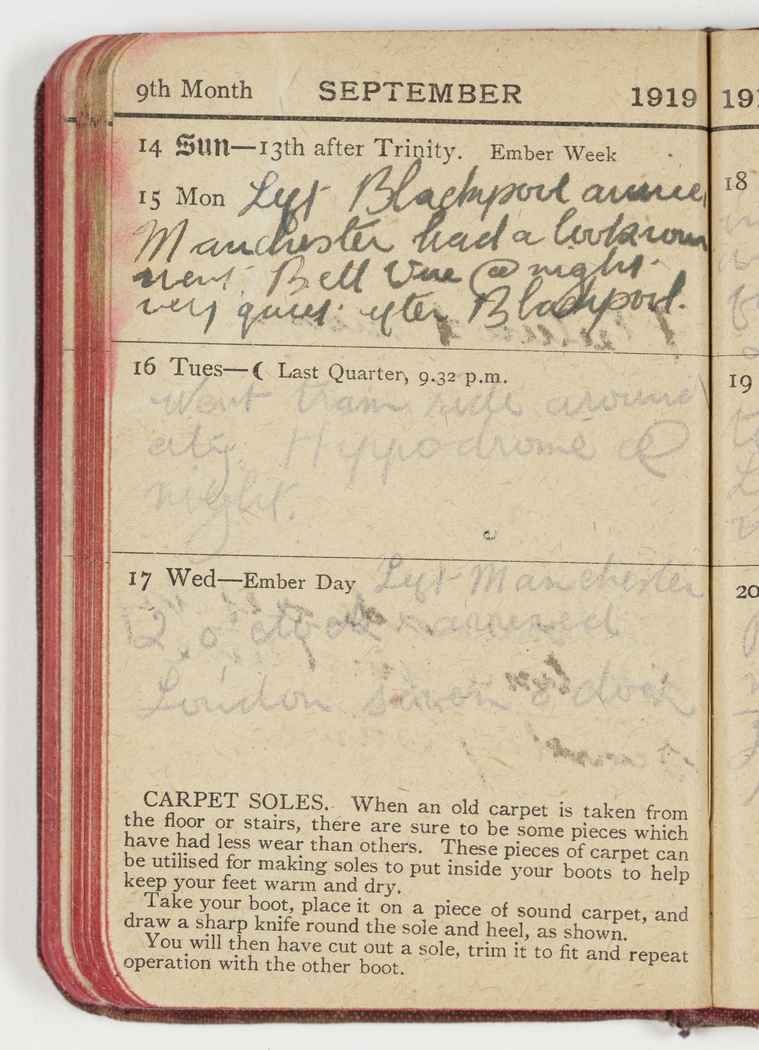 9th Month SEPTEMBER 1919
14 Sun—13th after Trinity. Ember Week
15 Mon Left Blackpool arrive
Manchester had a look roun
went Bell Vue @ night.
very quiet after Blackpool.
16 Tues—☾ Last Quarter, 9.32 p.m.
Went tram ride around
city Hippodrome @
night.
17 Wed—Ember Day Left Manchester
2.o clock arrived
London seven o clock
CARPET SOLES. When an old carpet is taken from
the floor or stairs, there are sure to be some pieces which
have had less wear than others. These pieces of carpet can
be utilised for making soles to put inside your boots to help
keep your feet warm and dry.
Take your boot, place it on a piece of sound carpet, and
draw a sharp knife round the sole and heel, as shown.
You will then have cut out a sole, trim it to fit and repeat
operation with the other boot.
191
18
19
20